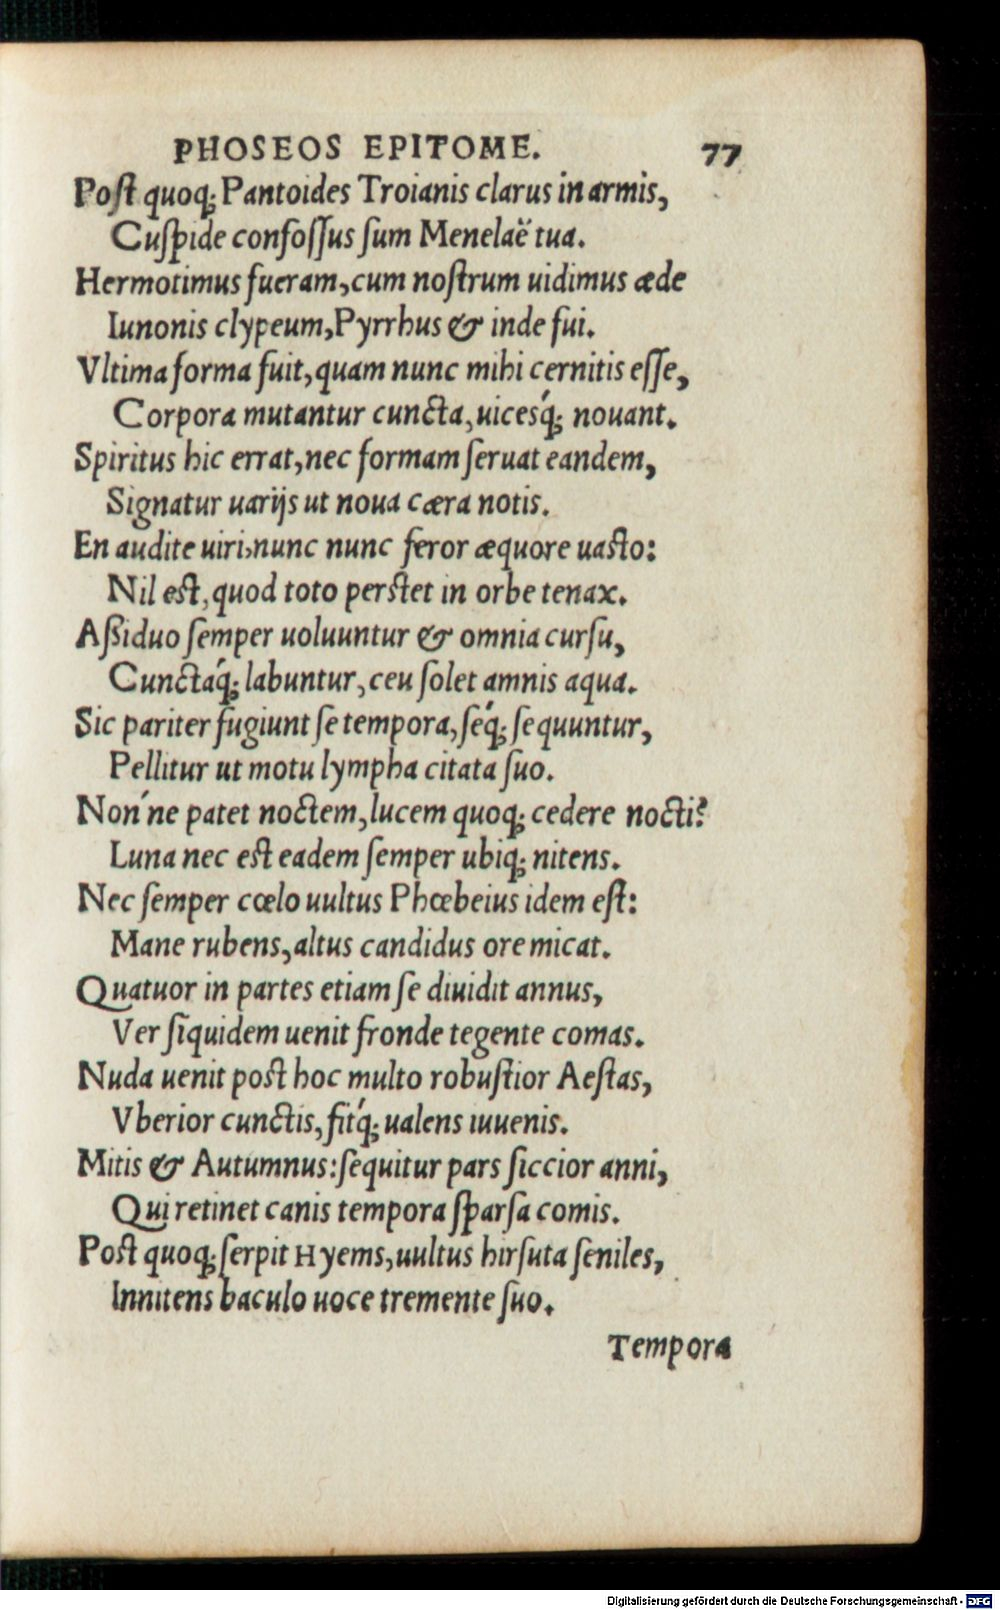 PHOSEOS EPITOME. 77
Poſt quoq; Pantoides Troianis clarus in armis,
Cuſpide confoſſus ſum Menelaë tua.
Hermotimus fueram, cum noſtrum uidimus æde
Iunonis clypeum, Pyrrhus & inde fui.
Vltima forma fuit, quam nunc mihi cernitis eſſe,
Corpora mutantur cuncta, uicesq́; nouant.
Spiritus hic errat, nec formam ſeruat eandem,
Signatur uarijs ut noua cæra notis.
En audite uiri, nunc nunc feror æquore uaſto:
Nil eſt, quod toto perſtet in orbe tenax.
Aßiduo ſemper uoluuntur & omnia curſu,
Cunctaq́; labuntur, ceu ſolet amnis aqua.
Sic pariter fugiunt ſe tempora, ſeq́; ſequuntur,
Pellitur ut motu lympha citata ſuo.
Non´ne patet noctem, lucem quoq; cedere nocti?
Luna nec eſt eadem ſemper ubiq; nitens.
Nec ſemper cœlo uultus Phœbeius idem eſt:
Mane rubens, altus candidus ore micat.
Quatuor in partes etiam ſe diuidit annus,
Ver ſiquidem uenit fronde tegente comas.
Nuda uenit poſt hoc multo robuſtior Aeſtas,
Vberior cunctis, fitq́; ualens iuuenis.
Mitis & Autumnus: ſequitur pars ſiccior anni,
Qui retinet canis tempora ſparſa comis.
Poſt quoq; ſerpit Hyems, uultus hirſuta ſeniles,
Innitens baculo uoce tremente ſuo.
Tempora
Digitalisierung gefördert durch die Deutsche Forschungsgemeinschaft - DFG